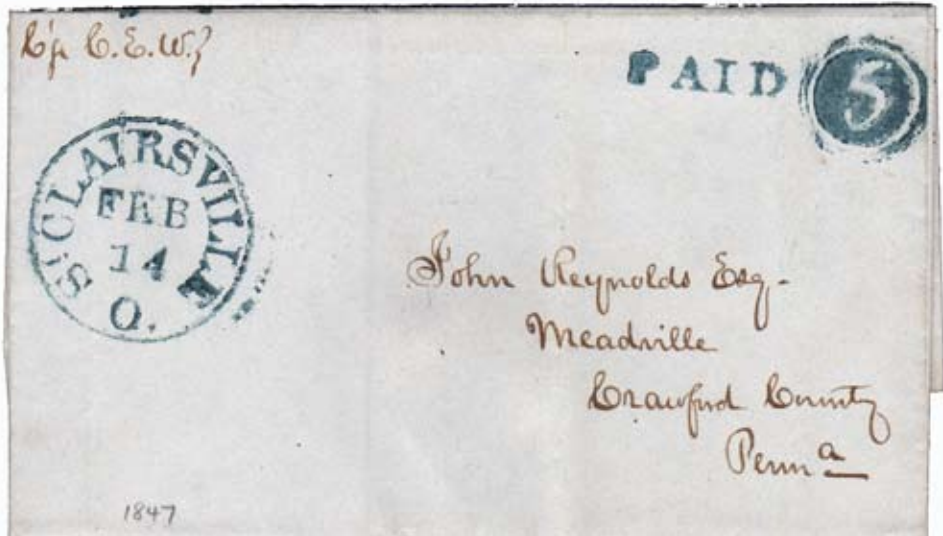 C. E. W.
PAID 5
ST CLAIRSVILLE
FEB
14
O.
John Reynolds Esq.
Meadville
Crawford County
Penna
1847